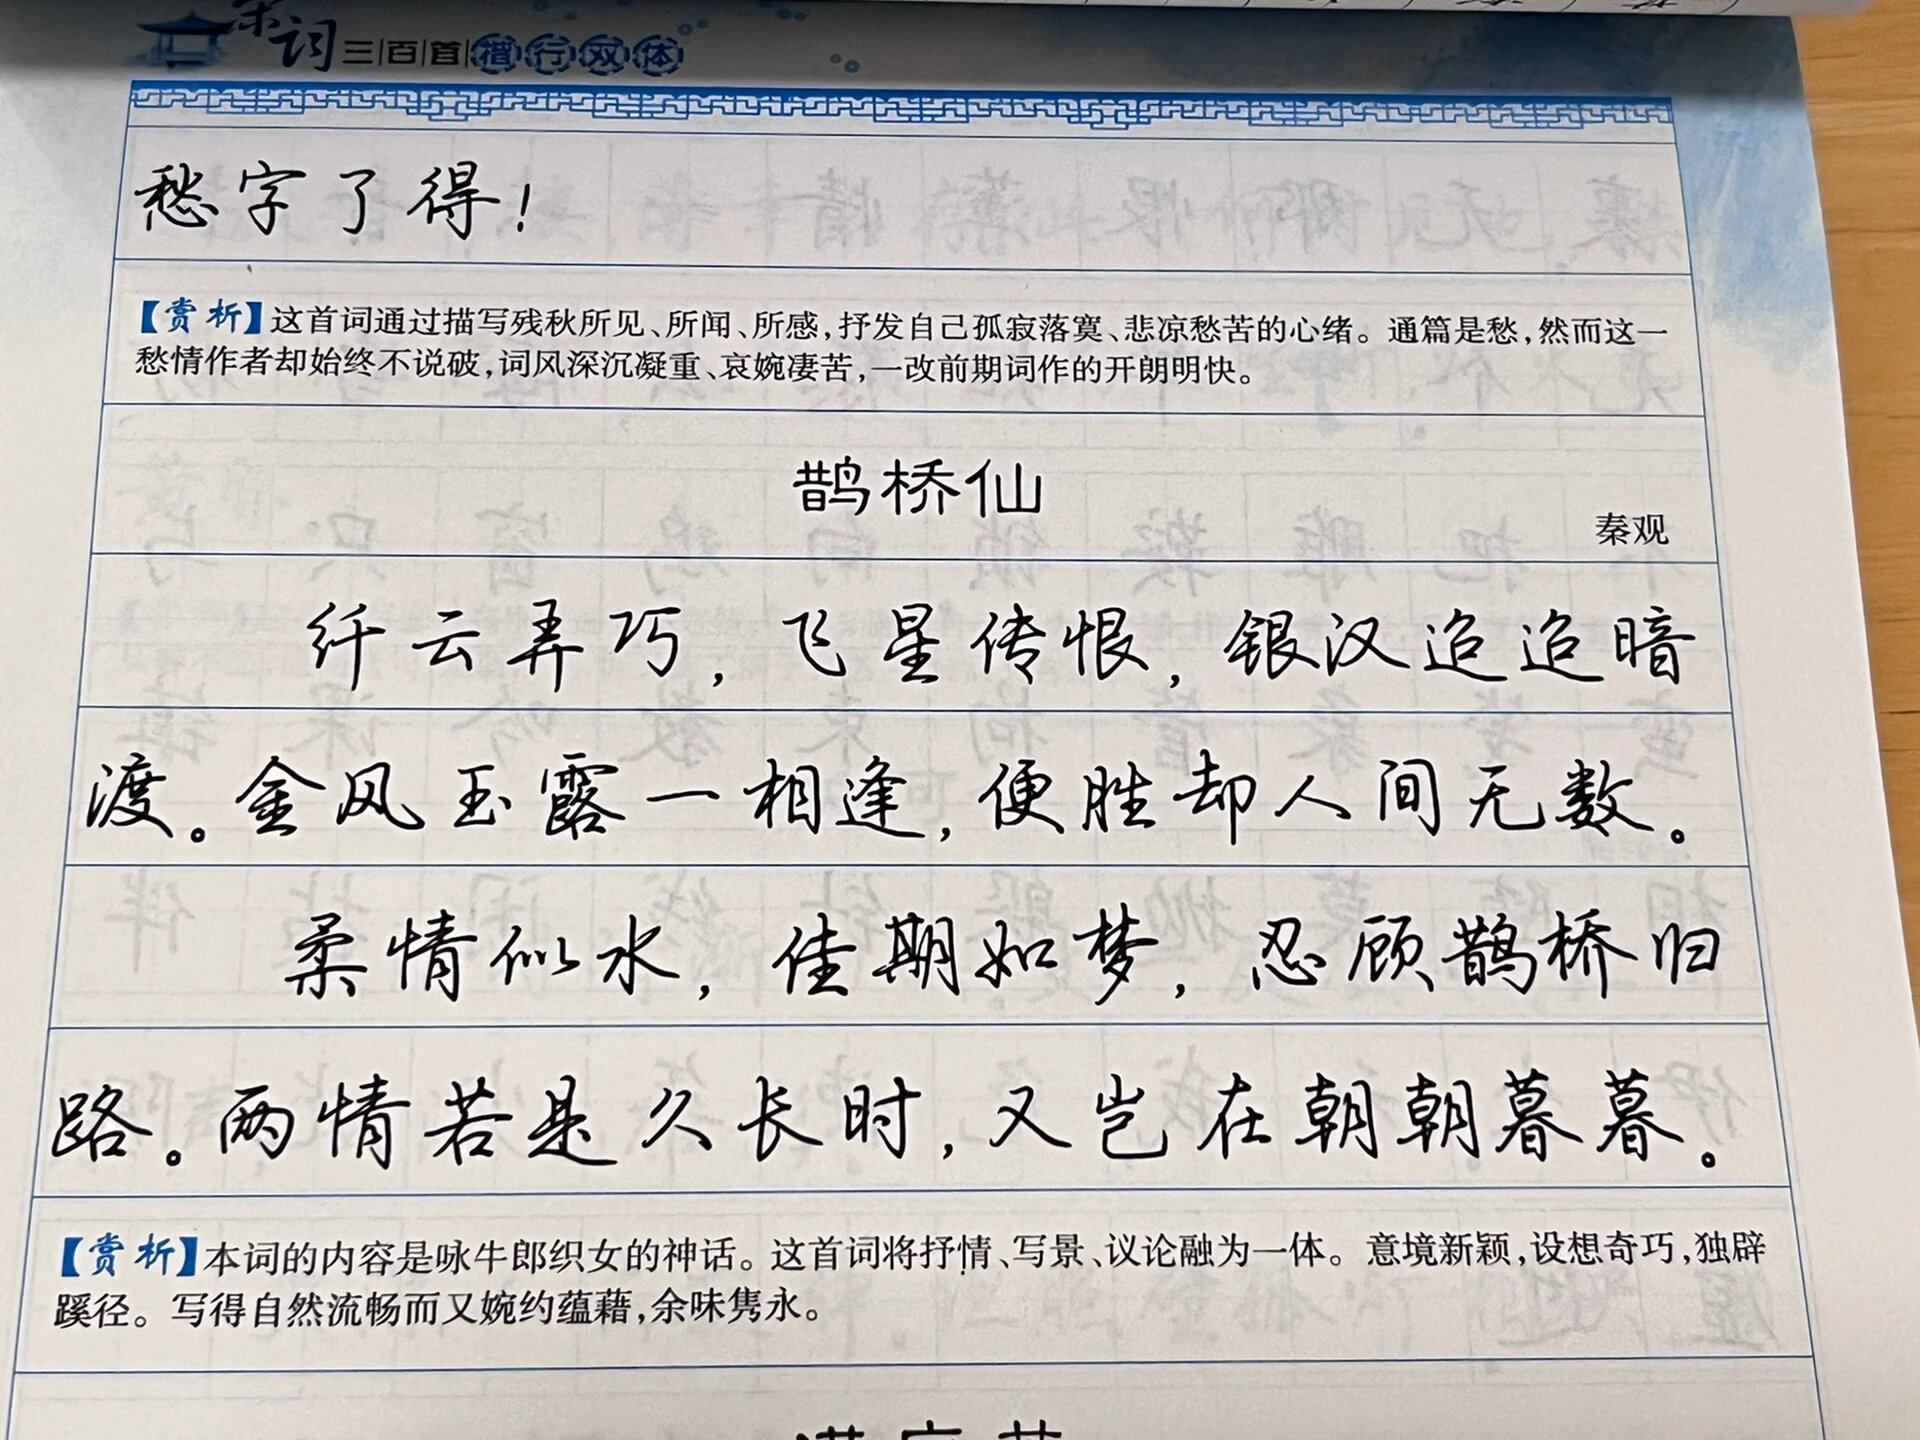 宋词三百首楷行双体
愁字了得！
【赏析】这首词通过描写残秋所见、所闻、所感，抒发自己孤寂落寞、悲凉愁苦的心绪。通篇是愁，然而这一
愁情作者却始终不说破，词风深沉凝重、哀婉凄苦，一改前期词作的开朗明快。
鹊桥仙
秦观
纤云弄巧，飞星传恨，银汉迢迢暗
渡。金风玉露一相逢，便胜却人间无数。
柔情似水，佳期如梦，忍顾鹊桥归
路。两情若是久长时，又岂在朝朝暮暮。
【赏析】本词的内容是咏牛郎织女的神话。这首词将抒情、写景、议论融为一体。意境新颖，设想奇巧，独辟
蹊径。写得自然流畅而又婉约蕴藉，余味隽永。